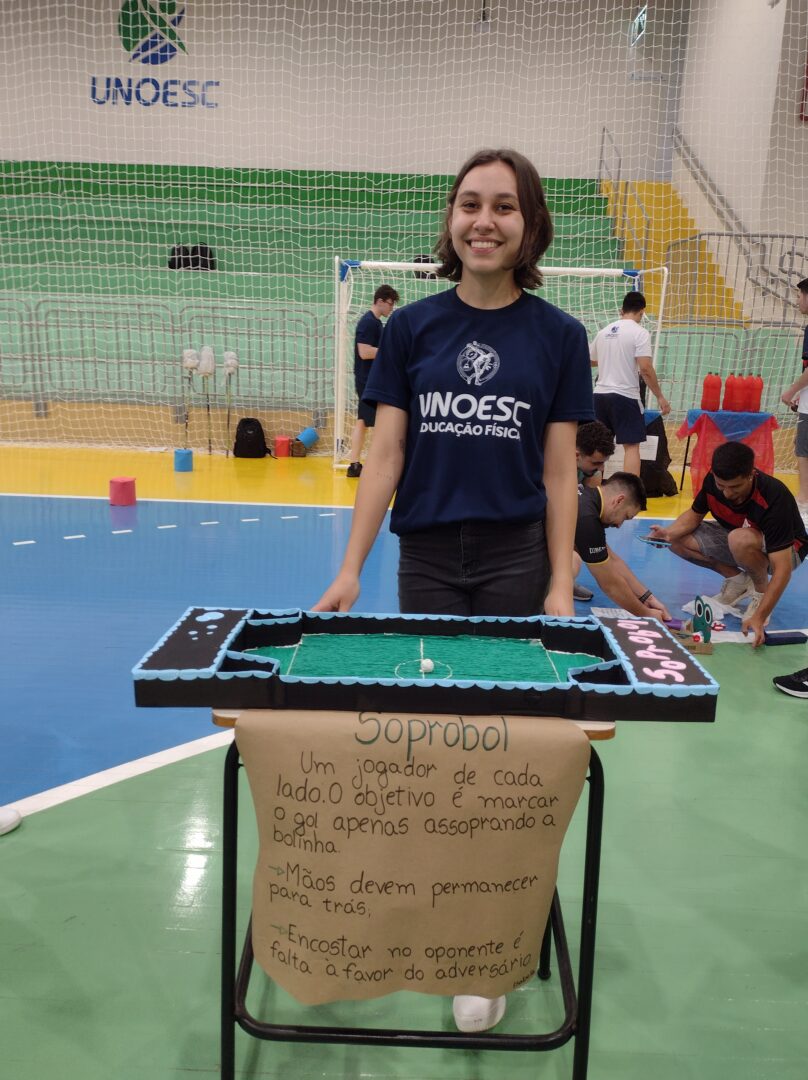 UNOESC
UNOESC
UNOESC
EDUCAÇÃO FÍSICA
SoPrObOl
Soprobol
Um jogador de cada
lado. O objetivo é marcar
o gol apenas assoprando a
bolinha.
→Mãos devem permanecer
para trás;
→Encostar no oponente é
falta à favor do adversário